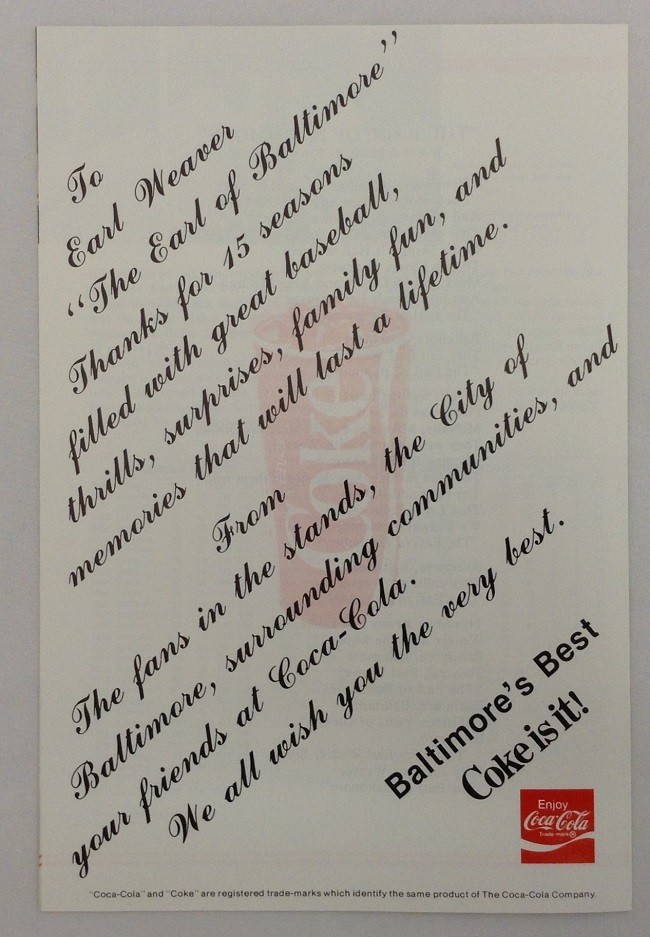 To
Earl Weaver
“The Earl of Baltimore”
Thanks for 15 seasons
filled with great baseball,
thrills, surprises, family fun, and
memories that will last a lifetime.
From
The fans in the stands, the City of
Baltimore, surrounding communities, and
your friends at Coca-Cola.
We all wish you the very best.
Baltimore's Best
Coke is it!
Enjoy
Coca-Cola
Trade-mark®
"Coca-Cola" and "Coke" are registered trade-marks which identify the same product of The Coca-Cola Company.
Coke